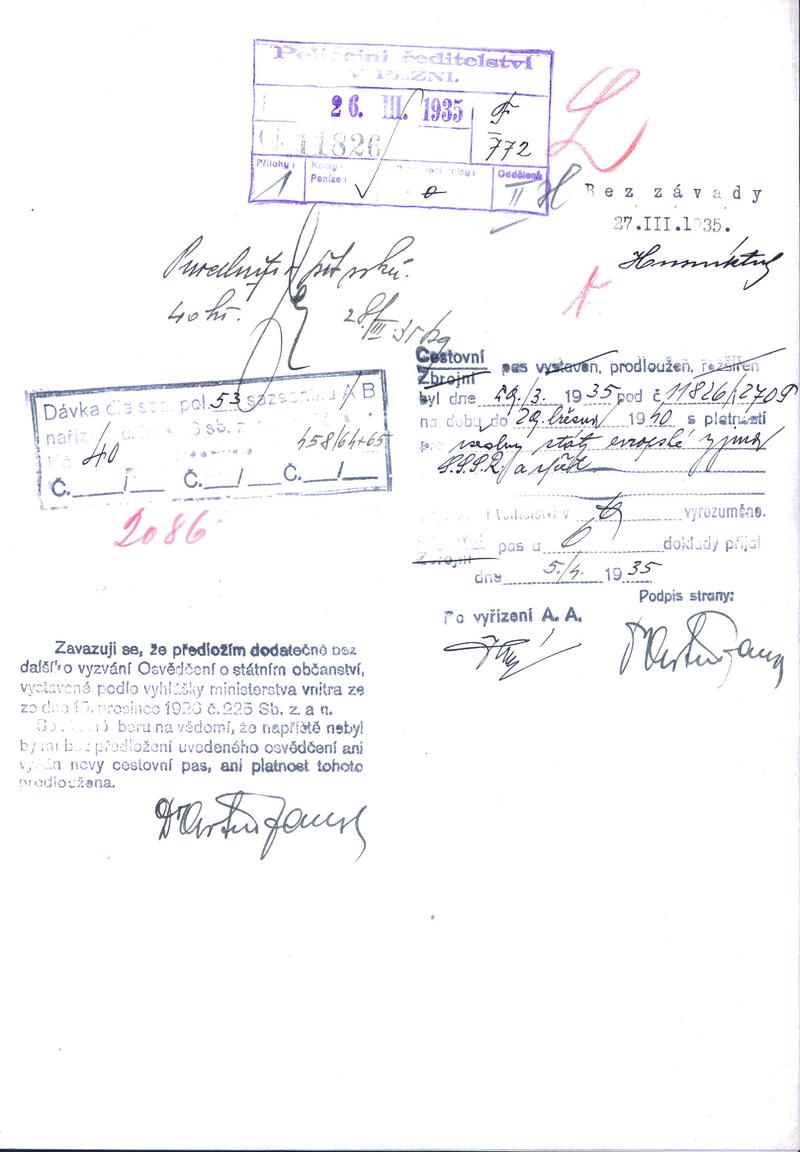 Policejní ředitelství
V PLZNI.
26. III. 1935
Čj. 11826
F
772
Přílohy:
Kolky:
Peníze:
Oddělení
1
II
L
Bez závady
27.III.1935.
pět roků.
40 kč.
28/III 35
Cestovní
Zbrojní
pas vystaven, prodloužen, rozšířen
byl dne 29/3. 1935 pod č. 11826/2709
na dobu do 29. března 1940 s platností
pro všechny státy evropské vyjma
S.S.S.R.
vyrozuměno.
Zbrojní pas a 6 doklady přijal
dne 5./4. 1935
Podpis strany:
Po vyřízení A. A.
Dávka dle saz. pol. 53 sazebníku A/B
sb. z.
40
458/64+65
Č. / Č. / Č. /
2086
Zavazuji se, že předložím dodatečně bez
dalšího vyzvání Osvědčení o státním občanství,
vystavené podle vyhlášky ministerstva vnitra ze
ze dne 15. prosince 1926 č. 225 Sb. z. a n.
beru na vědomí, že napříště nebyl
by mi bez předložení uvedeného osvědčení ani
vydán nový cestovní pas, ani platnost tohoto
prodloužena.